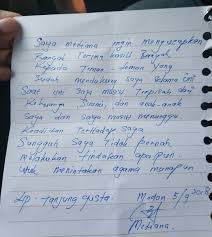 Saya meliana ingin mengucapkan
Banyak Terima kasih Banyak
kepada Teman-Teman yang
Sudah mendukung saya selama ini
Saat ini saya masih Terpisah dari
Keluarga Suami, dan anak-anak
Saya dan saya masih menunggu
Keadilan Terhadap saya
Sungguh Saya Tidak pernah
melakukan tindakan apapun
utk menistakan agama manapun
Lp. Tanjung Gusta. Medan 5/9 2018
Meliana.